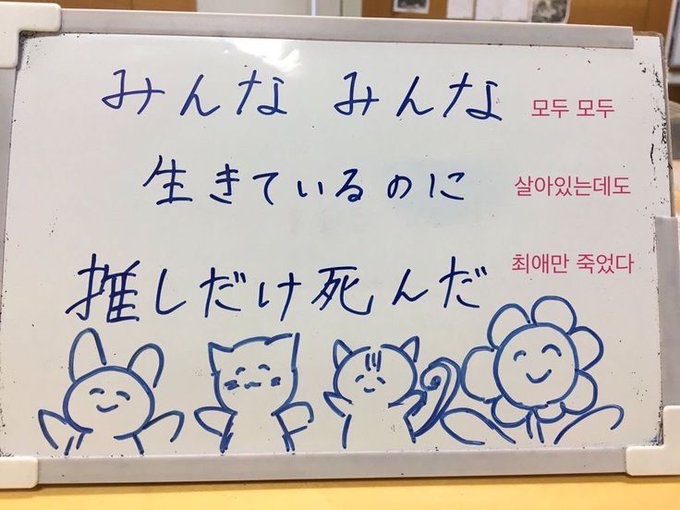 みんな みんな
모두 모두
生きているのに
살아있는데도
推しだけ死んだ
최애만 죽었다